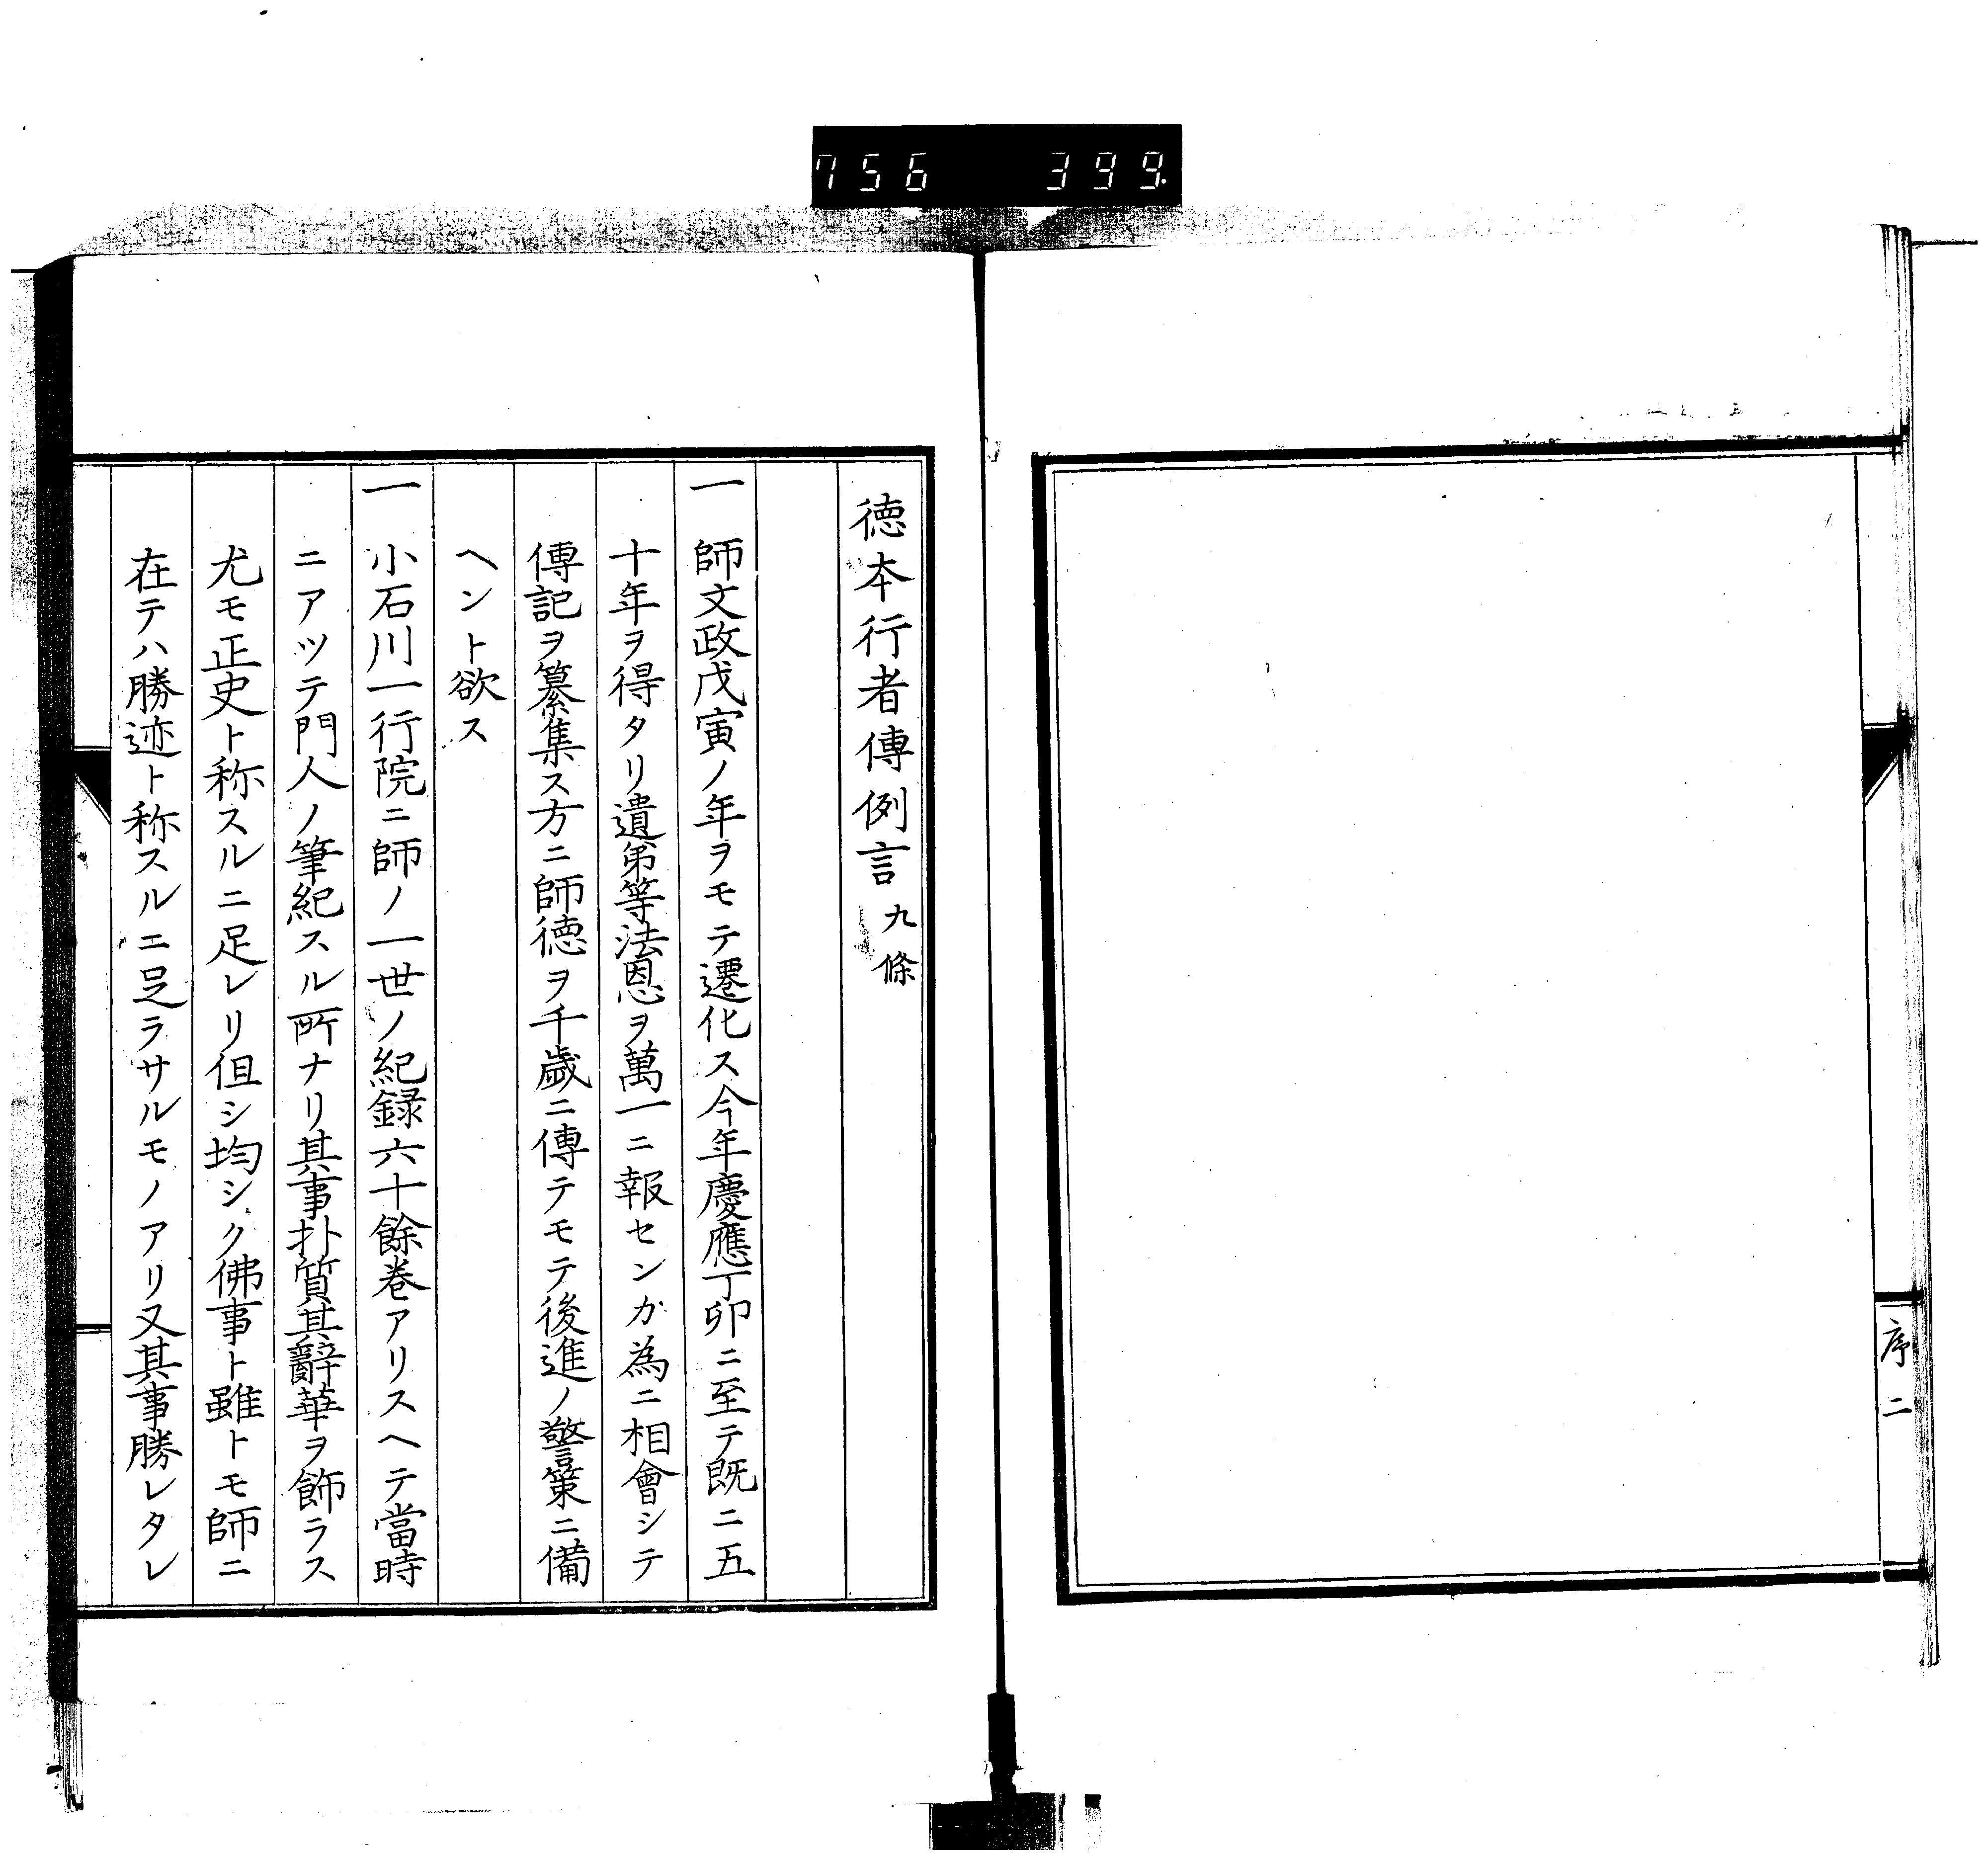 756 399.
序二
徳本行者傳例言九條
一師文政戊寅ノ年ヲモテ遷化ス今年慶應丁卯ニ至テ既ニ五
十年ヲ得タリ遺弟等法恩ヲ萬一ニ報センカ為ニ相會シテ
傳記ヲ纂集ス方ニ師徳ヲ千歳ニ傳テモテ後進ノ警策ニ備
ヘント欲ス
一小石川一行院ニ師ノ一世ノ紀録六十餘巻アリスヘテ當時
ニアツテ門人ノ筆紀スル所ナリ其事扑質其辭華ヲ飾ラス
尤モ正史ト称スルニ足レリ但シ均シク佛事ト雖トモ師ニ
在テハ勝迹ト称スルニ足ラサルモノアリ又其事勝レタレ